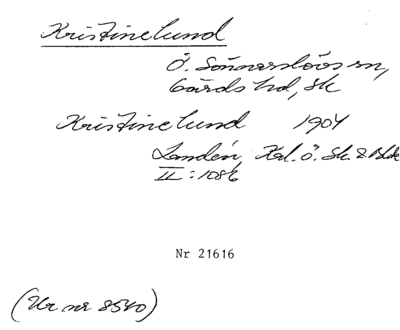 Kristinelund
Ö. Sönnarslövs sn,
Gärds hd, Sk
Kristinelund 1904
Landén, Kal. ö. Sk. & Blek
II:1086
Nr 21616
(Ur nr 8540)